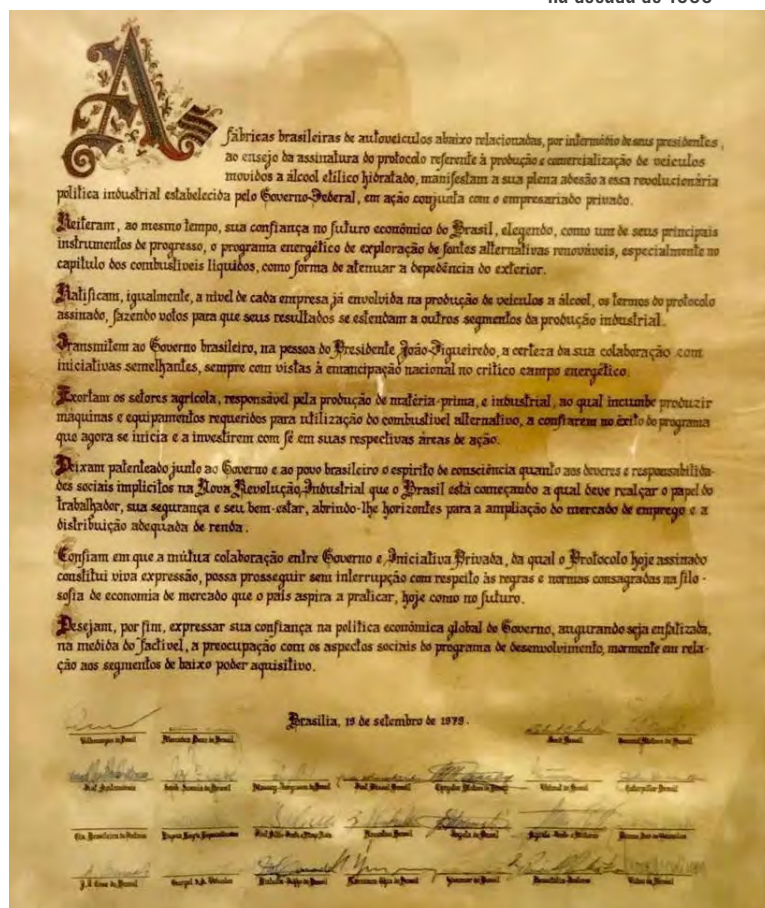 na década de 1980
As fábricas brasileiras de autoveículos abaixo relacionadas, por intermédio de seus presidentes,
ao ensejo da assinatura do protocolo referente à produção e comercialização de veículos
movidos a álcool etílico hidratado, manifestam a sua plena adesão a essa revolucionária
política industrial estabelecida pelo Governo Federal, em ação conjunta com o empresariado privado.
Reiteram, ao mesmo tempo, sua confiança no futuro econômico do Brasil, elegendo, como um de seus principais
instrumentos de progresso, o programa energético de exploração de fontes alternativas renováveis, especialmente no
capítulo dos combustíveis líquidos, como forma de atenuar a depedência do exterior.
Ratificam, igualmente, a nível de cada empresa já envolvida na produção de veículos a álcool, os termos do protocolo
assinado, fazendo votos para que seus resultados se estendam a outros segmentos da produção industrial.
Transmitem ao Governo brasileiro, na pessoa do Presidente João Figueiredo, a certeza da sua colaboração com
iniciativas semelhantes, sempre com vistas à emancipação nacional no crítico campo energético.
Exortam os setores agrícola, responsável pela produção de matéria-prima, e industrial, ao qual incumbe produzir
máquinas e equipamentos requeridos para utilização do combustível alternativo, a confiarem no êxito do programa
que agora se inicia e a investirem com fé em suas respectivas áreas de ação.
Deixam patenteado junto ao Governo e ao povo brasileiro o espírito de consciência quanto aos deveres e responsabilida-
des sociais implícitos na Nova Revolução Industrial que o Brasil está começando a qual deve realçar o papel do
trabalhador, sua segurança e seu bem-estar, abrindo-lhe horizontes para a ampliação do mercado de emprego e a
distribuição adequada de renda.
Confiam em que a mútua colaboração entre Governo e Iniciativa Privada, da qual o Protocolo hoje assinado
constitui viva expressão, possa prosseguir sem interrupção com respeito às regras e normas consagradas na filo-
sofia de economia de mercado que o país aspira a praticar, hoje como no futuro.
Desejam, por fim, expressar sua confiança na política econômica global do Governo, augurando seja enfatizada,
na medida do factível, a preocupação com os aspectos sociais do programa de desenvolvimento, mormente em rela-
ção aos segmentos de baixo poder aquisitivo.
Brasília, 19 de setembro de 1979.
Volkswagen do Brasil Mercedes Benz do Brasil Ford Brasil General Motors do Brasil
Fiat Automóveis Saab Scania do Brasil Massey Ferguson do Brasil Fiat Diesel Brasil Chrysler Motors do Brasil Valmet do Brasil Caterpillar Brasil
Cia. Brasileira de Tratores
J.I. Case do Brasil Gurgel S.A. Veículos Yanmar do Brasil Volvo do Brasil